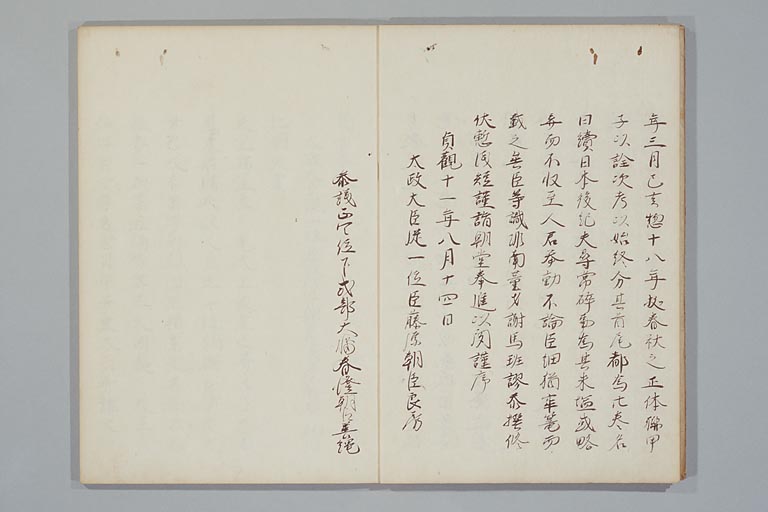 年三月己亥惣十八年拠春秋之正体聯甲
子以詮次考以始終分其首尾都為廿巻名
曰續日本後紀夫尋常碎事為其米塩或略
弃而不収至人君挙動不論臣細猶牢篭而
載之矣臣等識非南董才謝馬班謬参撰修
伏慙浅短謹詣朝堂奉進以聞謹序
貞觀十一年八月十四日
太政大臣従一位臣藤原朝臣良房
参議正四位下式部大輔春澄朝臣善縄